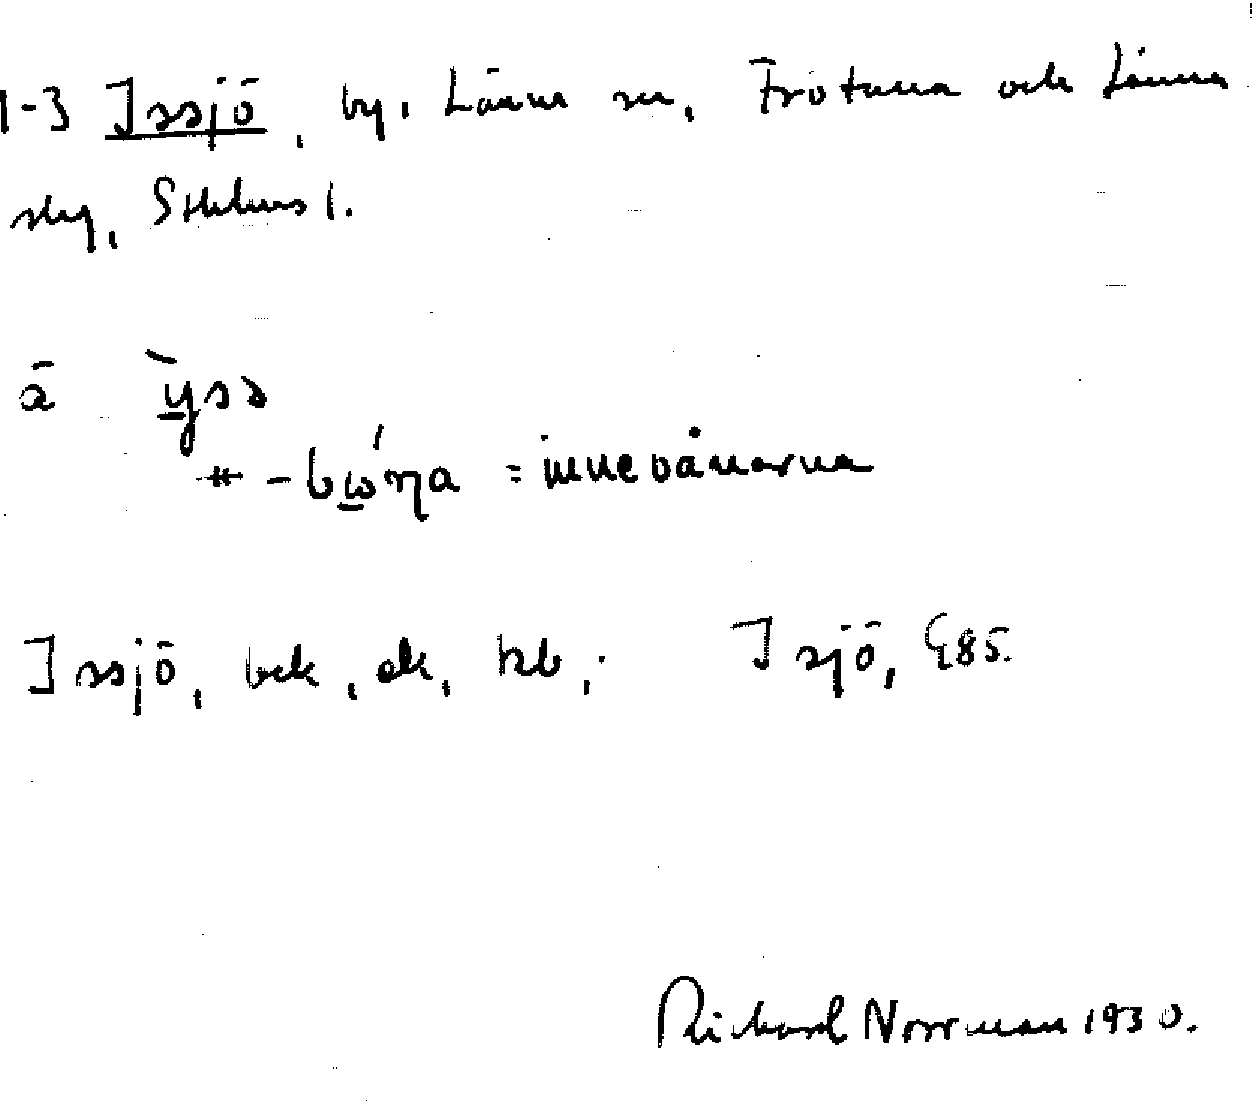 1-3 Issjö, by, Länna sn, Frötuna och Länna
skg, Sthlms l.
ā ỳsə
⧺ -bωńa = innevånarna
Issjö, bek, ek, kb; Isjö, G85.
Richard Norrman 1930.